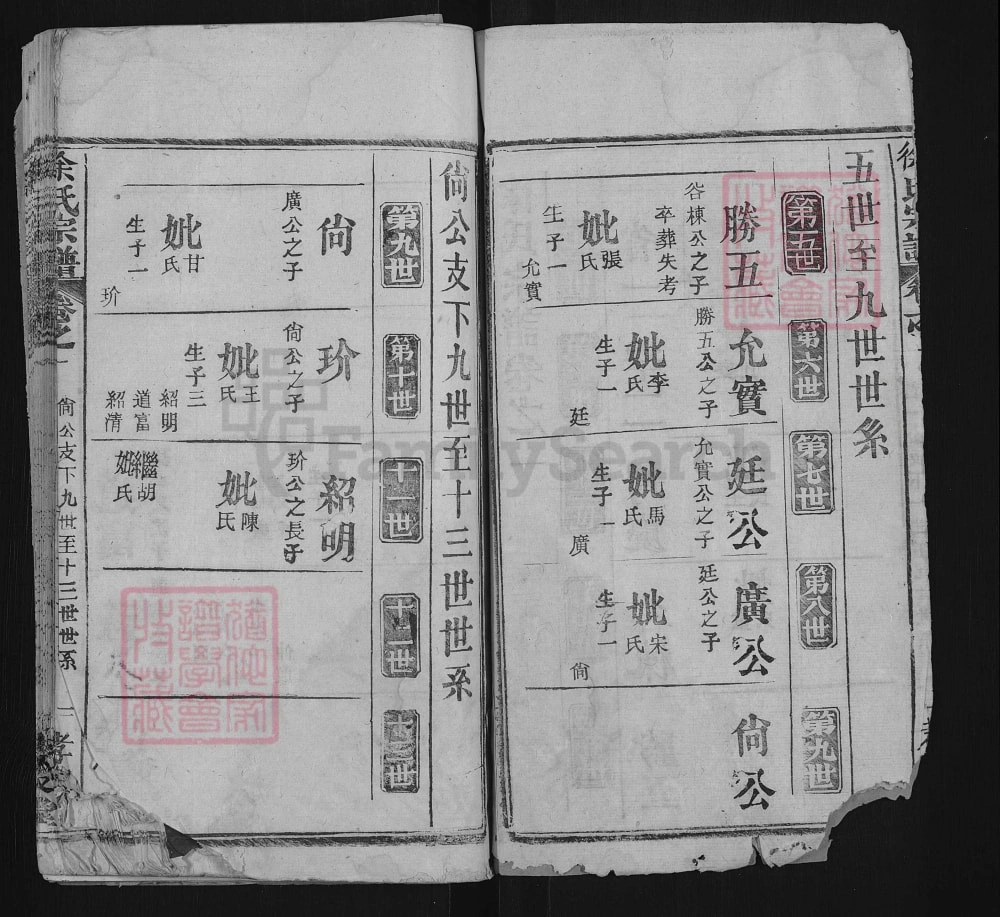 五世至九世世系
第五世
勝五
峆棟公之子
卒葬失考
妣張氏
生子一
允實
第六世
允實
勝五公之子
妣李氏
生子一
廷
第七世
廷公
允實公之子
妣馬氏
生子一
廣
第八世
廣公
廷公之子
妣宋氏
生子一
尙
第九世
尙公
尙公支下九世至十三世世系
第九世
尙
廣公之子
妣甘氏
生子一
玠
第十世
玠
尙公之子
妣王氏
生子三
紹明
道富
紹清
十一世
紹明
玠公之長子
妣陳氏
繼胡
妣氏
十二世
十三世
徐氏宗譜
卷之一
尙公支下九世至十三世世系
一
孝
猶他家譜學會特藏
FamilySearch